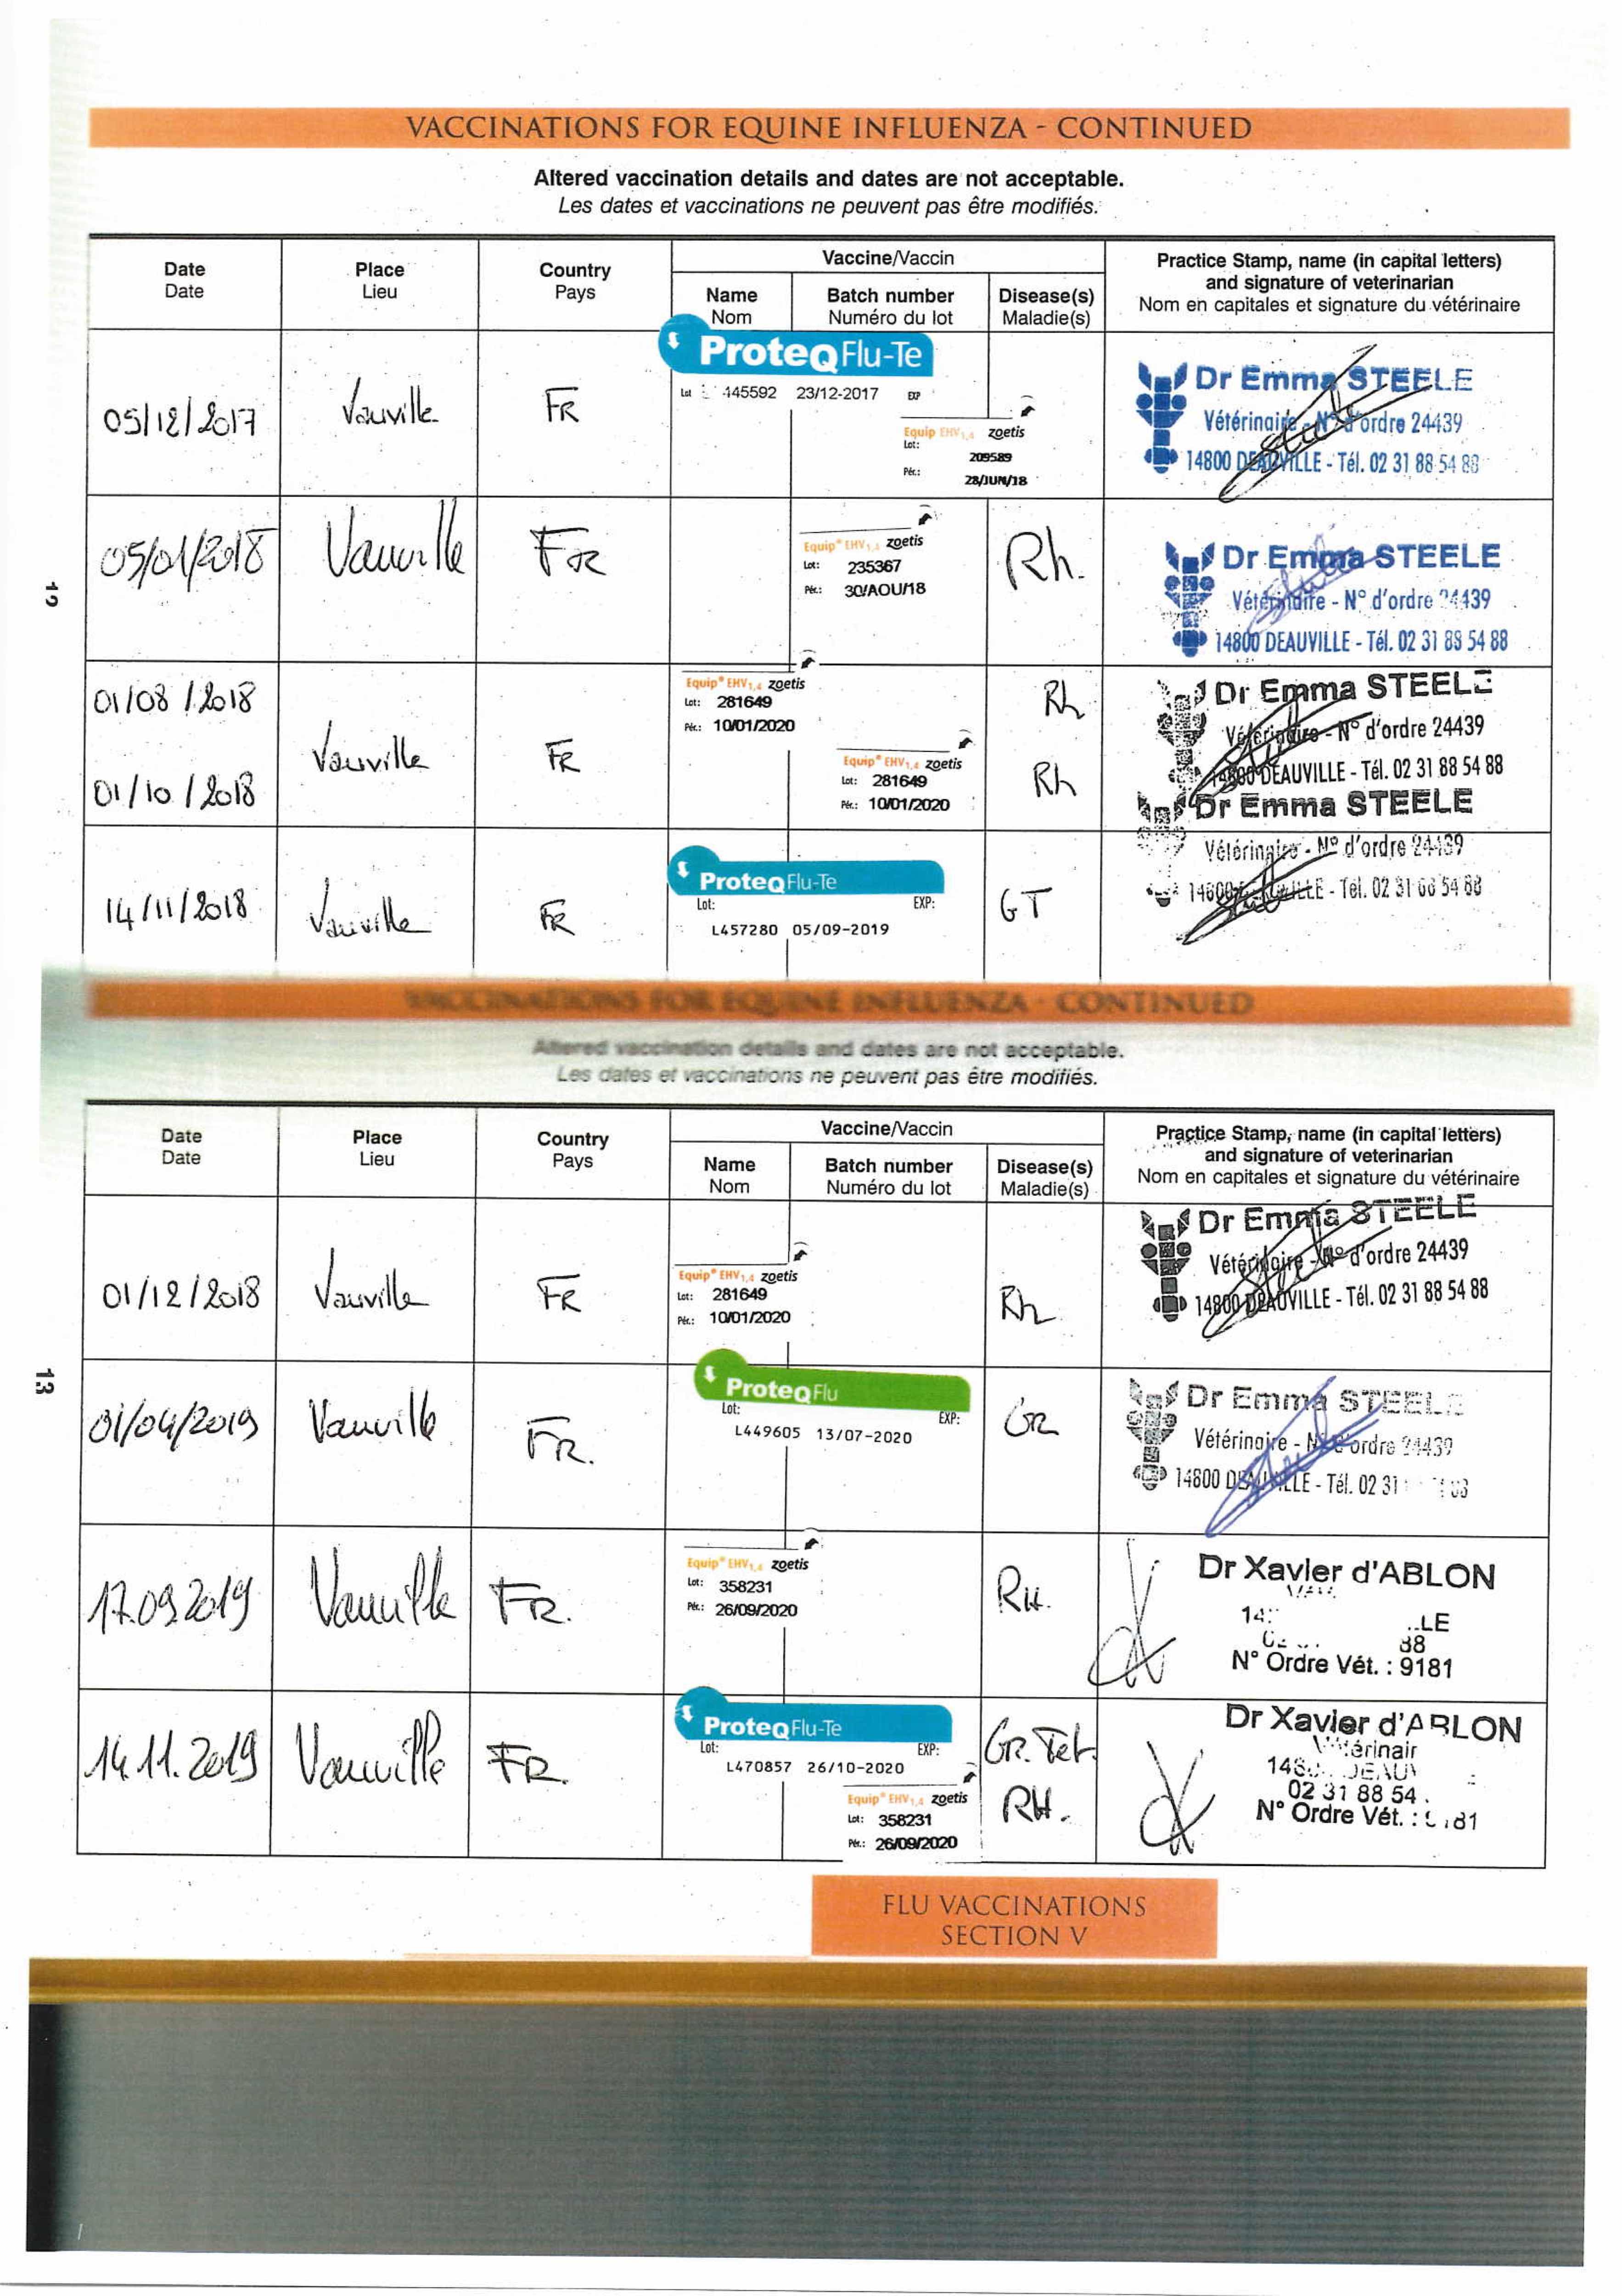 VACCINATIONS FOR EQUINE INFLUENZA - CONTINUED
Altered vaccination details and dates are not acceptable.
Les dates et vaccinations ne peuvent pas être modifiés.
Date Place Country Vaccine/Vaccin Practice Stamp, name (in capital letters)
Date Lieu Pays and signature of veterinarian
Name Batch number Disease(s) Nom en capitales et signature du vétérinaire
Nom Numéro du lot Maladie(s)
ProteqFlu-Te
Lot : 445592 23/12-2017 EXP
05/12/2017 Vauville FR
Equip EHV1,4 zoetis
Lot: 209589
Pér.: 28/JUN/18
Dr Emma STEELE
Vétérinaire - N° d'ordre 24439
14800 DEAUVILLE - Tél. 02 31 88 54 88
05/01/2018 Vauville FR
Equip® EHV1,4 zoetis
Lot: 235367
Pér.: 30/AOU/18
Rh.
Dr Emma STEELE
Vétérinaire - N° d'ordre 24439
14800 DEAUVILLE - Tél. 02 31 88 54 88
12
01/08/2018
Equip® EHV1,4 zoetis
Lot: 281649
Pér.: 10/01/2020
Rh
Dr Emma STEELE
Vétérinaire - N° d'ordre 24439
14800 DEAUVILLE - Tél. 02 31 88 54 88
Vauville FR
01/10/2018
Equip® EHV1,4 zoetis
Lot: 281649
Pér.: 10/01/2020
Rh
Dr Emma STEELE
Vétérinaire - N° d'ordre 24439
14/11/2018 Vauville FR
ProteqFlu-Te
Lot: EXP:
L457280 05/09-2019
GT
VACCINATIONS FOR EQUINE INFLUENZA - CONTINUED
Altered vaccination details and dates are not acceptable.
Les dates et vaccinations ne peuvent pas être modifiés.
Date Place Country Vaccine/Vaccin Practice Stamp, name (in capital letters)
Date Lieu Pays and signature of veterinarian
Name Batch number Disease(s) Nom en capitales et signature du vétérinaire
Nom Numéro du lot Maladie(s)
01/12/2018 Vauville FR
Equip® EHV1,4 zoetis
Lot: 281649
Pér.: 10/01/2020
Rh
Dr Emma STEELE
Vétérinaire - N° d'ordre 24439
14800 DEAUVILLE - Tél. 02 31 88 54 88
13
01/04/2019 Vauville FR.
ProteqFlu
Lot: EXP:
L449605 13/07-2020
GR
Dr Emma STEELE
Vétérinaire - N° d'ordre 24439
14800 DEAUVILLE - Tél. 02 31
17.09.2019 Vauville FR.
Equip® EHV1,4 zoetis
Lot: 358231
Pér.: 26/09/2020
RH.
Dr Xavier d'ABLON
N° Ordre Vét. : 9181
14.11.2019 Vauville FR.
ProteqFlu-Te
Lot: EXP:
L470857 26/10-2020
Gr. Tet.
Equip® EHV1,4 zoetis
Lot: 358231
Pér.: 26/09/2020
RH.
Dr Xavier d'ABLON
02 31 88 54
N° Ordre Vét. :
FLU VACCINATIONS
SECTION V